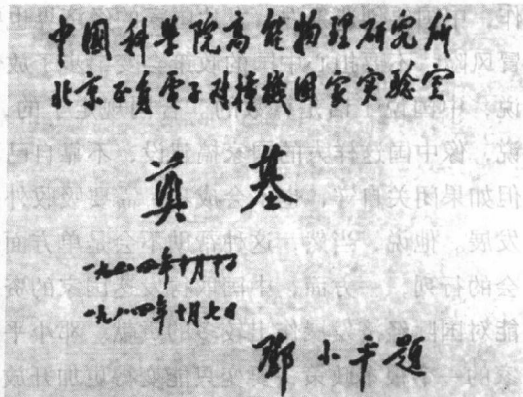 中國科学院高能物理研究所
北京正負電子对撞機国家实验室
奠基
一九八四年十月
一九八四年十月七日
鄧小平題